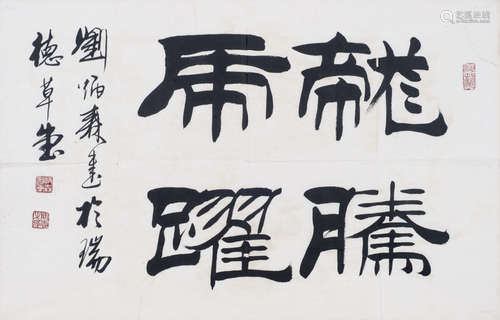 龍騰
虎躍
劉炳森書於瑞
德草堂